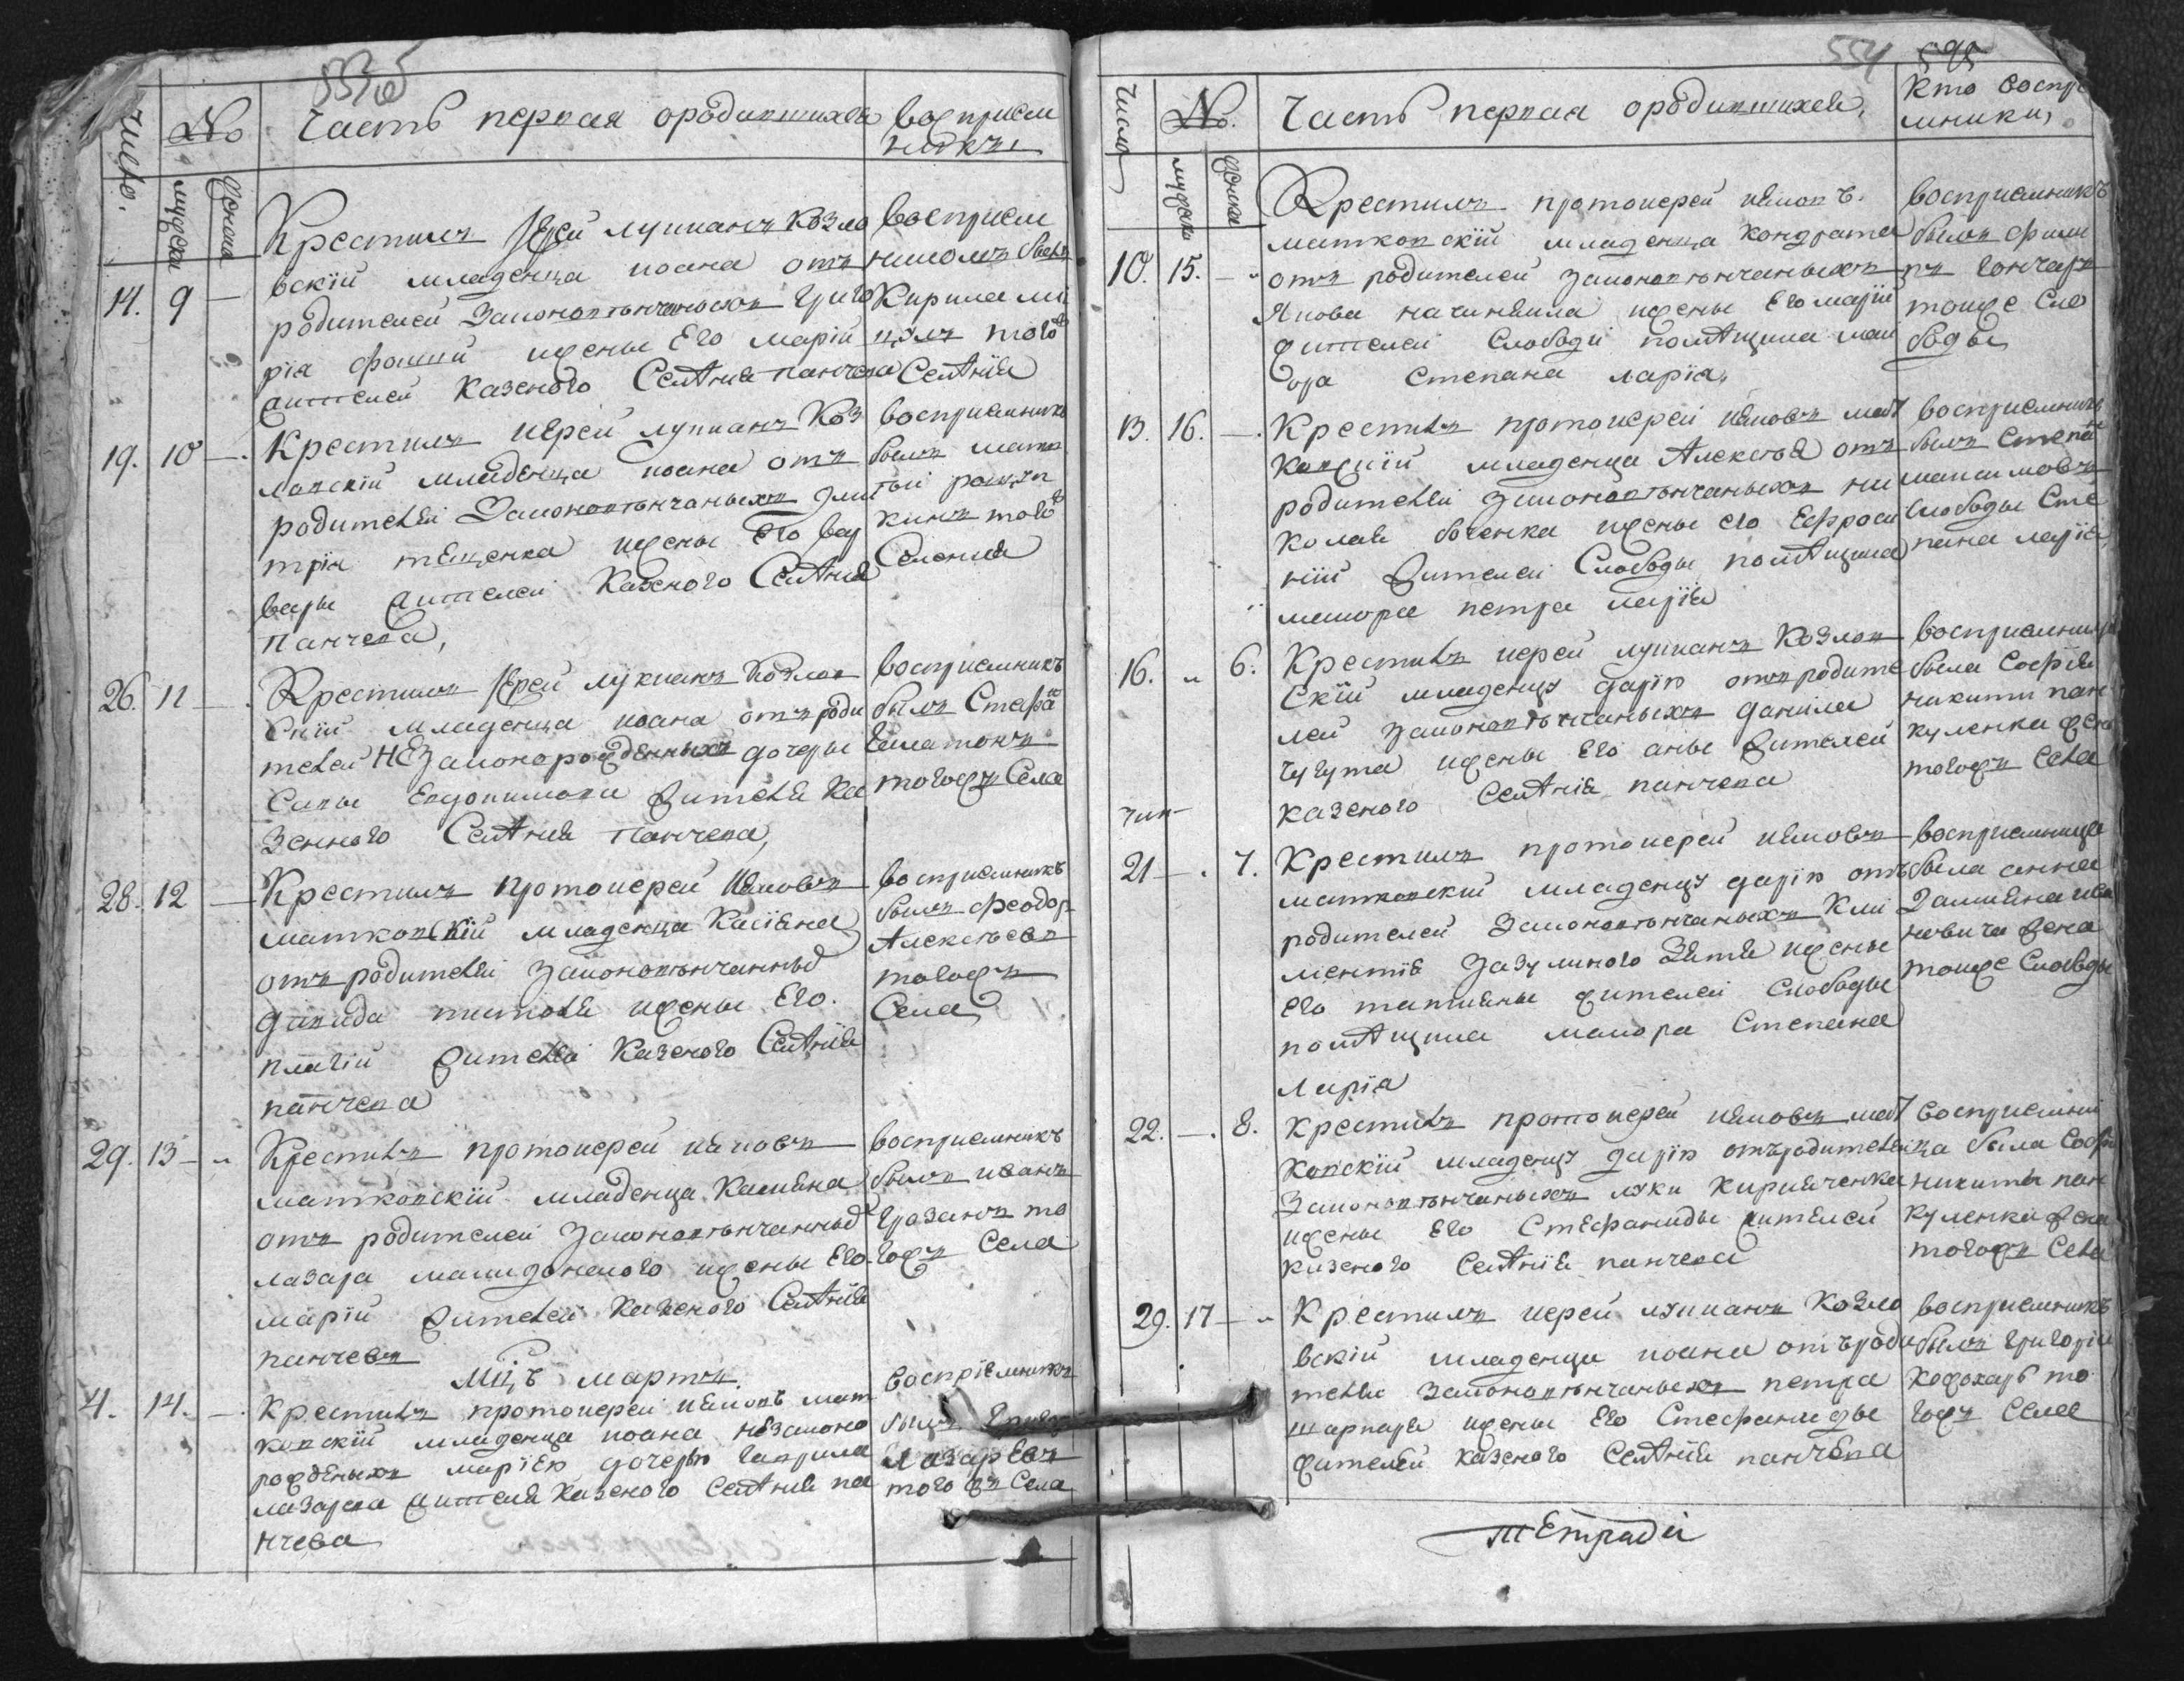 553 об
Число.
No
мужска
женска
Часть первая ородившихся
восприем
никъ
14. 9 —
Крестилъ Іерей лукианъ Козло
вский младенца иоана отъ
родителей Законовѣнчаныхъ Григо
рія фомин ижены Его маріи
жителей казеного Селѣния панчева
восприем
никомъ былъ
Кирила
того
Селѣния
19. 10 —.
Крестилъ иерей лукианъ Коз
ловский младенца иоана отъ
родителей Законовѣнчаныхъ дми
трія ижены Его вар
вары жителей Казеного Селѣния
панчева,
восприемникъ
былъ матв
ѣй
того
Селения
26. 11 —.
Крестилъ Іерей лукианъ Козлов
ский младенца иоана отъ роди
телей НЕзаконорожденныхъ дочеры
Савы Евдокимова жителя ка
зенного Селѣния панчева,
восприемникъ
былъ Стефа
тогожъ Села
28. 12 —
Крестилъ протоиерей иаковъ
матковский младенца Касіяна
отъ родителей законовѣнчанныъ
давида титова ижены Его.
плагіи жителей Казеного Селѣния
панчева
восприемникъ
былъ феодор
Алексѣевъ
тогожъ
Села
29. 13 — „
Крестилъ протоиерей иаковъ
матковский младенца Касияна
отъ родителей законовѣнчанныъ
лазара македонсмого ижены Его
маріи жителей казеного Селѣния
панчевъ
восприемникъ
былъ иванъ
то
гожъ Села
Мцъ мартъ
4. 14. —.
Крестилъ протоиерей иаковъ мат
ковский младенца иоана незаконо
рожденыхъ маріею дочерю гаврила
лазарева жителя казеного Селѣния па
нчева
воспріемникъ
былъ
Лазаревъ
того жъ Села
554 595
Число
No.
мужска
женска
Часть первая ородившихся,
Кто воспрі
мники,
10. 15. — „
Крестилъ протоиерей иаковъ.
матковскій младенца кондрата
отъ родителей законовѣнчаныхъ
Якова ижены Его маріи
жителей Слободи помѣщика маи
ора Степана ларія,
восприемникъ
былъ фили
пъ гончаръ
тоиже Сло
боды
13. 16. —.
Крестилъ протоиерей иаковъ мат
ковский младенца Алексѣя отъ
родителей законовѣнчаныхъ ни
колая боченка ижены его Ефроси
ніи жителей Слободы помѣщика
маиора петра ларія
восприемникъ
былъ Степа
максимовъ
слободы Сте
пана ларія,
16. „ 6.
Крестилъ иерей лукианъ Козлов
Скій младенцу дарію отъ родите
лей законовѣнчаныхъ данила
чугута ижены Его аны жителей
казеного Селѣнія панчева
восприемница
была Софія
никити пан
куленка жена
тогожъ Села
21 —. 7.
Крестилъ протоиерей иаковъ
матковский младенцу дарію отъ
родителей законовѣнчаныхъ кли
ментія зазулиного зятя ижены
его татияны жителей Слободы
помѣщика маиора Степана
ларія
восприемница
была анна
Дамияна ива
новича жена
тоиже Слободы
22. —. 8.
Крестилъ протоиерей иаковъ мат
ковскій младенцу дарію отъ родителей
законовѣнчаныхъ луки кириченка
ижены Его Стефаниды жителей
казеного Селѣнія панчева
восприемни
ца была Софи
никиты пан
куленка жена
тогожъ Села
29. 17 — „
Крестилъ иерей лукианъ Козло
вскій младенца иоана отъ роди
телей законовѣнчаныхъ петра
шарпаря ижены Его Стефаниды
жителей казеного Селѣнія панчева
восприемникъ
былъ Григоріи
кожохаръ то
гожъ Села
тЕтради